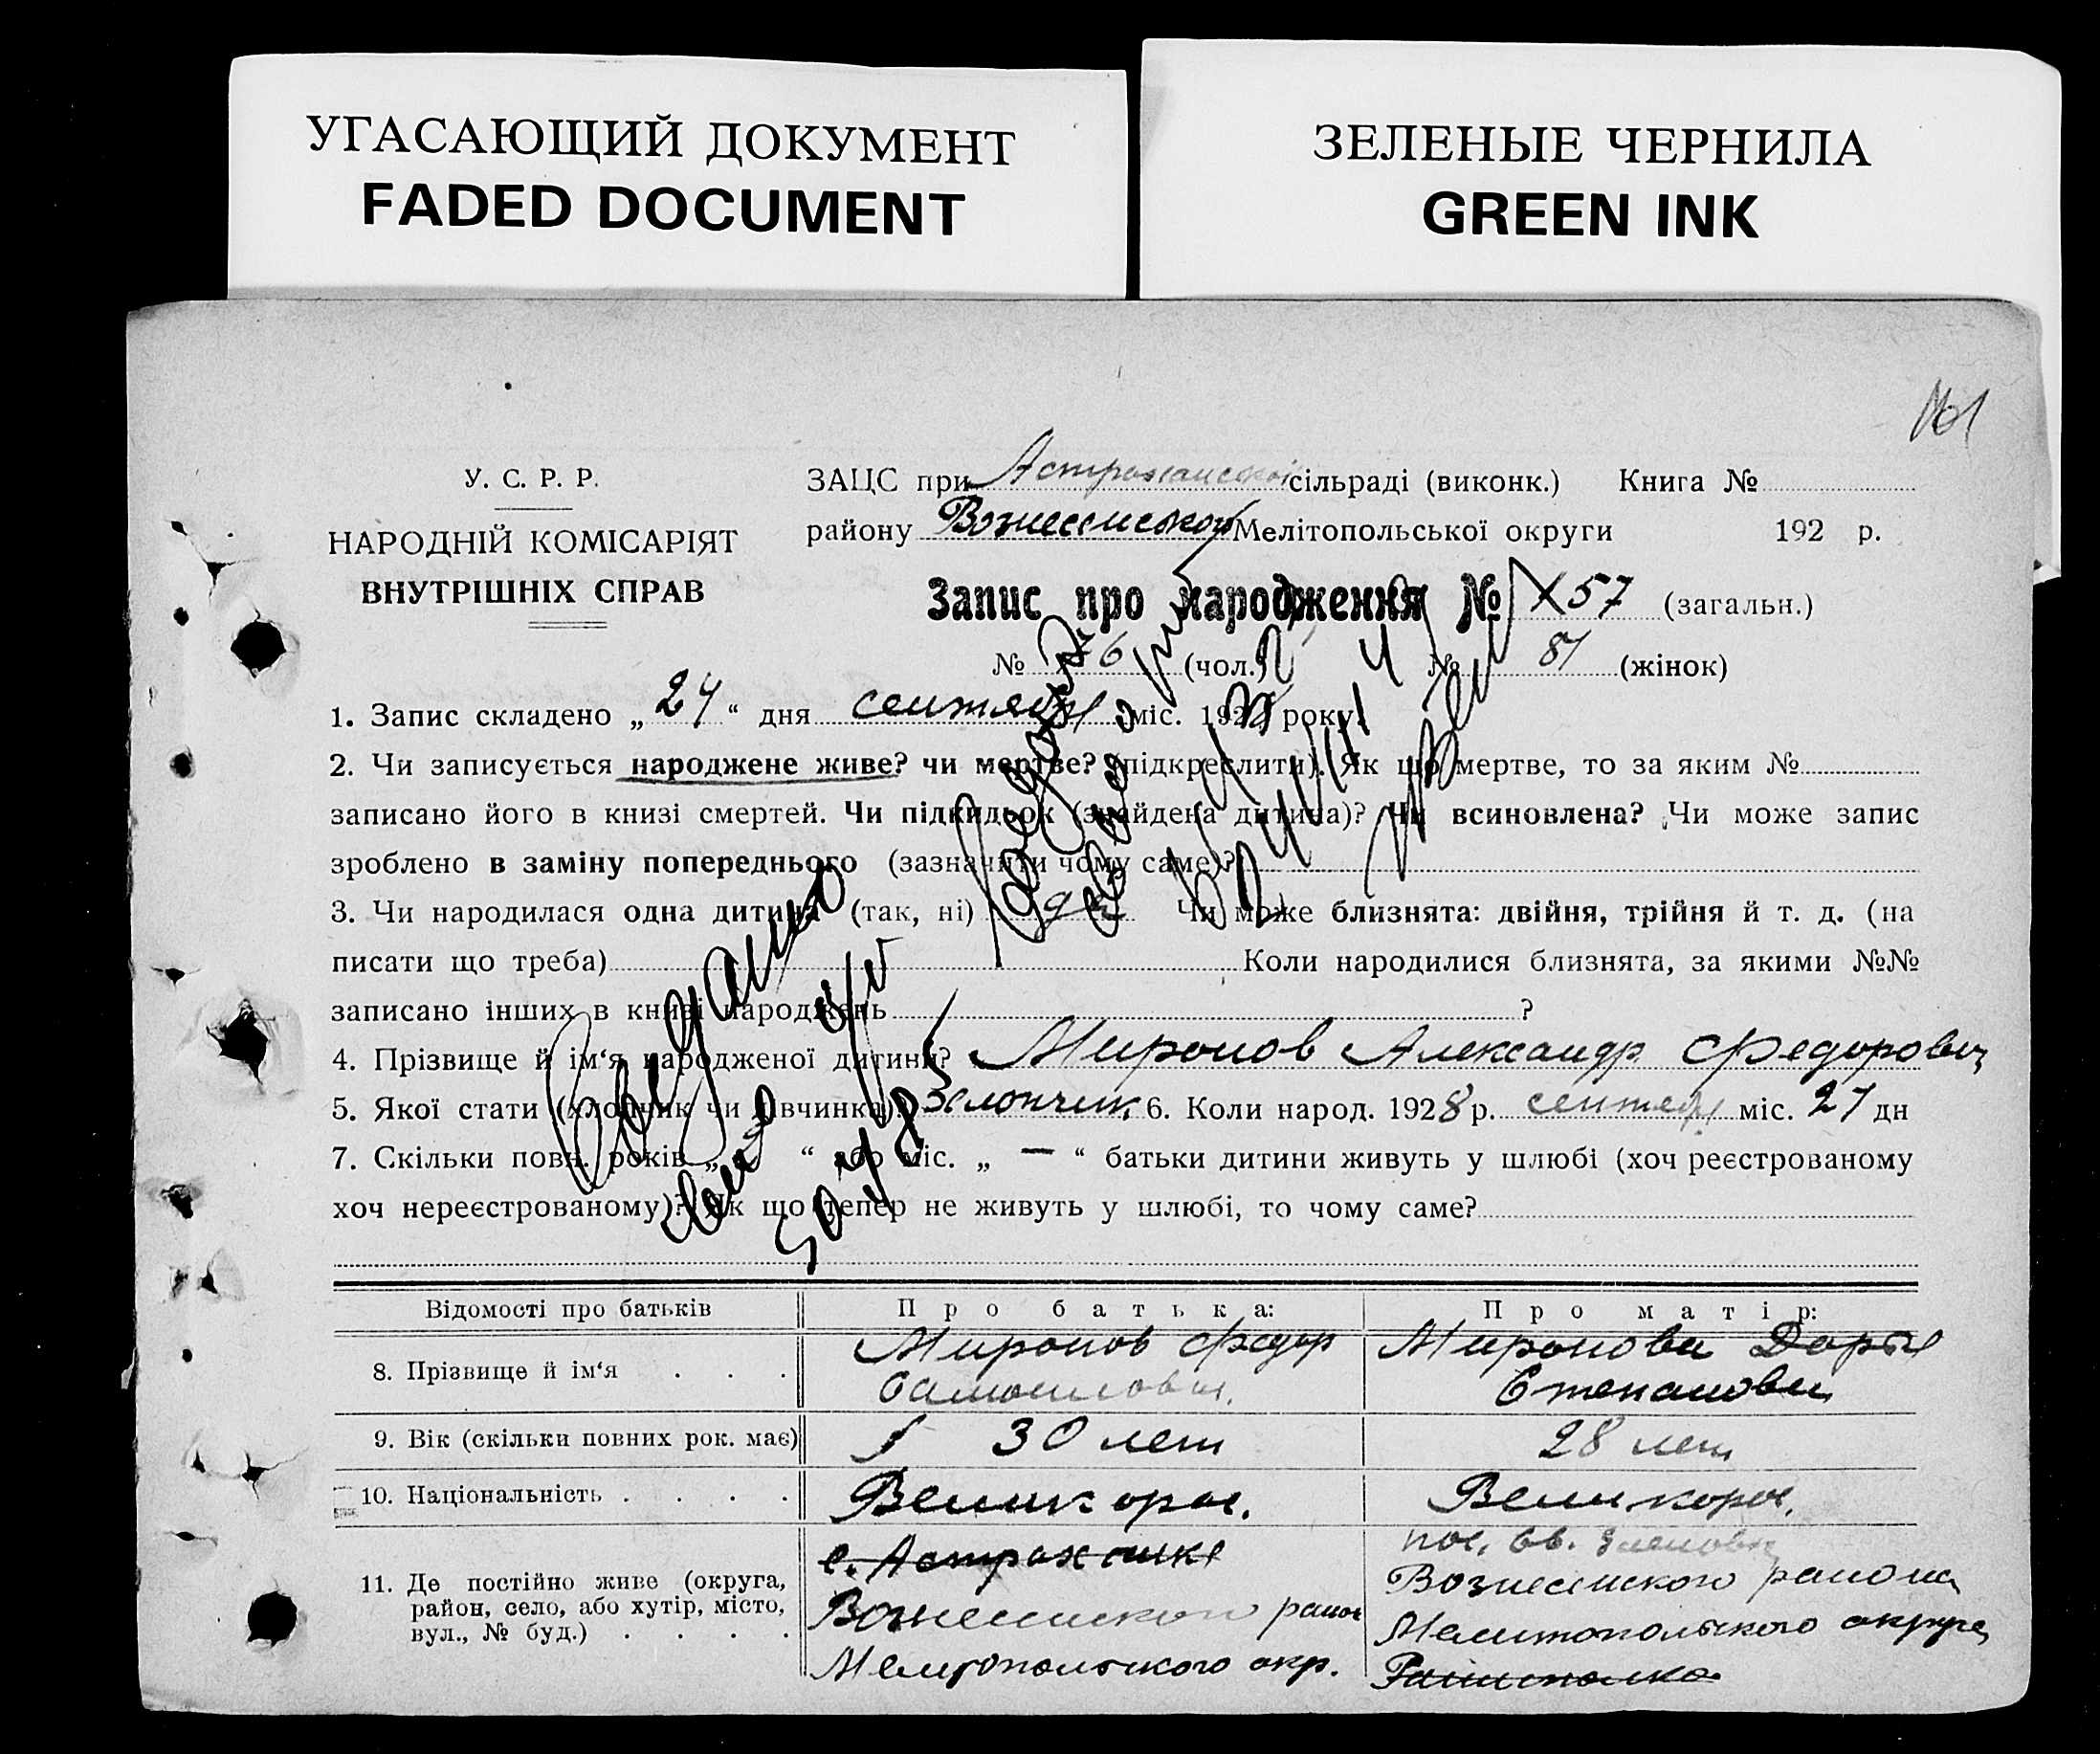 УГАСАЮЩИЙ ДОКУМЕНТ
FADED DOCUMENT
ЗЕЛЕНЫЕ ЧЕРНИЛА
GREEN INK
161
У. С. Р. Р.
НАРОДНІЙ КОМІСАРІЯТ
ВНУТРІШНІХ СПРАВ
ЗАЦС при Астраханской сільраді (виконк.) Книга №
району Вознесенської Мелітопольської округи 192 р.
Запис про народження № 157 (загальн.)
№ 76 (чол.) № 81 (жінок)
1. Запис складено „ 24 “ дня сентября міс. 1928 року.
2. Чи записується народжене живе? чи мертве? (підкреслити). Як що мертве, то за яким №
записано його в книзі смертей. Чи підкидьок (знайдена дитина)? Чи всиновлена? Чи може запис
зроблено в заміну попереднього (зазначити чому саме)?
3. Чи народилася одна дитина (так, ні) Чи може близнята: двійня, трійня й т. д. (на
писати що треба) Коли народилися близнята, за якими №№
записано інших в книзі народжень ?
4. Прізвище й ім‘я народженої дитини? Миронов Александр Федорович
5. Якої стати (хлопчик чи дівчинка)? Хлопчик 6. Коли народ. 1928 р. сентября міс. 21 дн
7. Скільки повн. років „ “ або міс. „ — “ батьки дитини живуть у шлюбі (хоч реєстрованому
хоч нереєстрованому)? Як що тепер не живуть у шлюбі, то чому саме?
Відомості про батьків Про батька: Про матір:
8. Прізвище й ім‘я . . . Миронов Федор Миронова Дарья
Самойлович Степановн
9. Вік (скільки повних рок. має) 30 лет 28 лет
10. Національність . . . . Великорос. Великорос.
11. Де постійно живе (округа,
район, село, або хутір, місто,
вул., № буд.) . . . .
с. Астраханка
Вознесенского район
Мелитопольского окр.
пос.
Вознесенского района
Мелитопольского округа